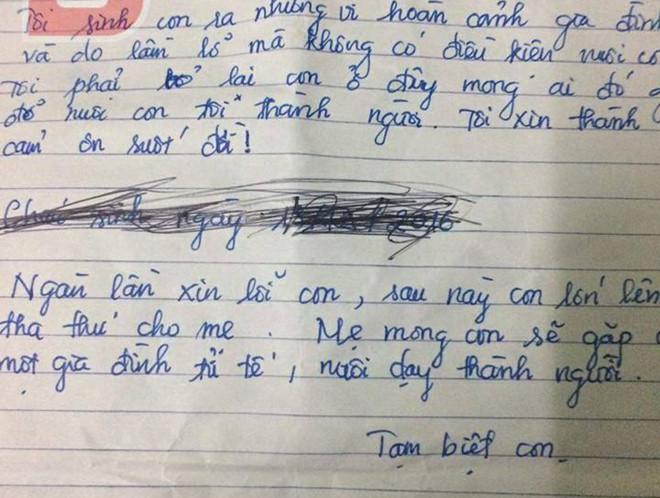 Tôi sinh con ra nhưng vì hoàn cảnh gia đình
và do lầm lỗ mà không có điều kiện nuôi co
Tôi phải bỏ lại con ở đây mong ai đó
đó nuôi con tôi thành người. Tôi xin thành
cảm ơn suốt đời!
sinh ngày 2016
Ngàn lần xin lỗi con, sau này con lớn lên
tha thứ cho mẹ. Mẹ mong con sẽ gặp
một gia đình tử tế, nuôi dạy thành người.
Tạm biệt con.